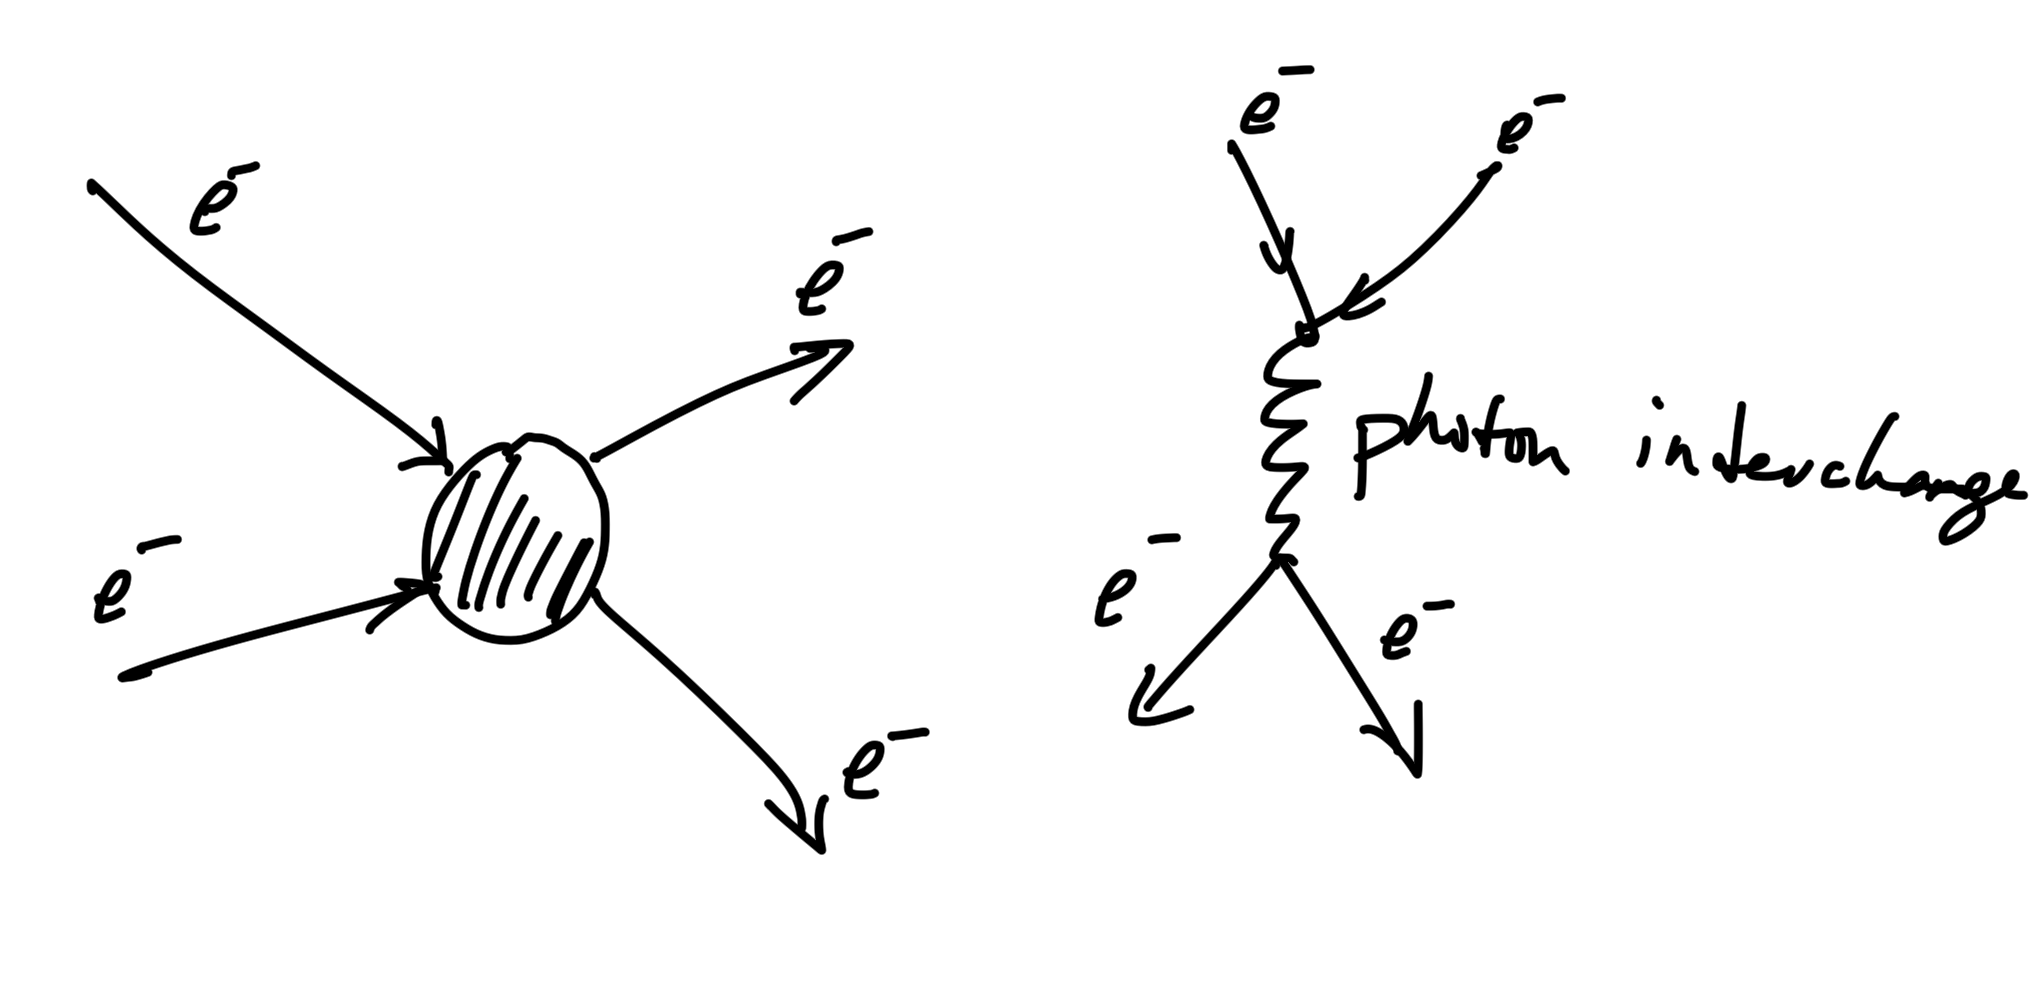 e⁻
e⁻
e⁻
e⁻
e⁻
e⁻
photon interchange
e⁻
e⁻